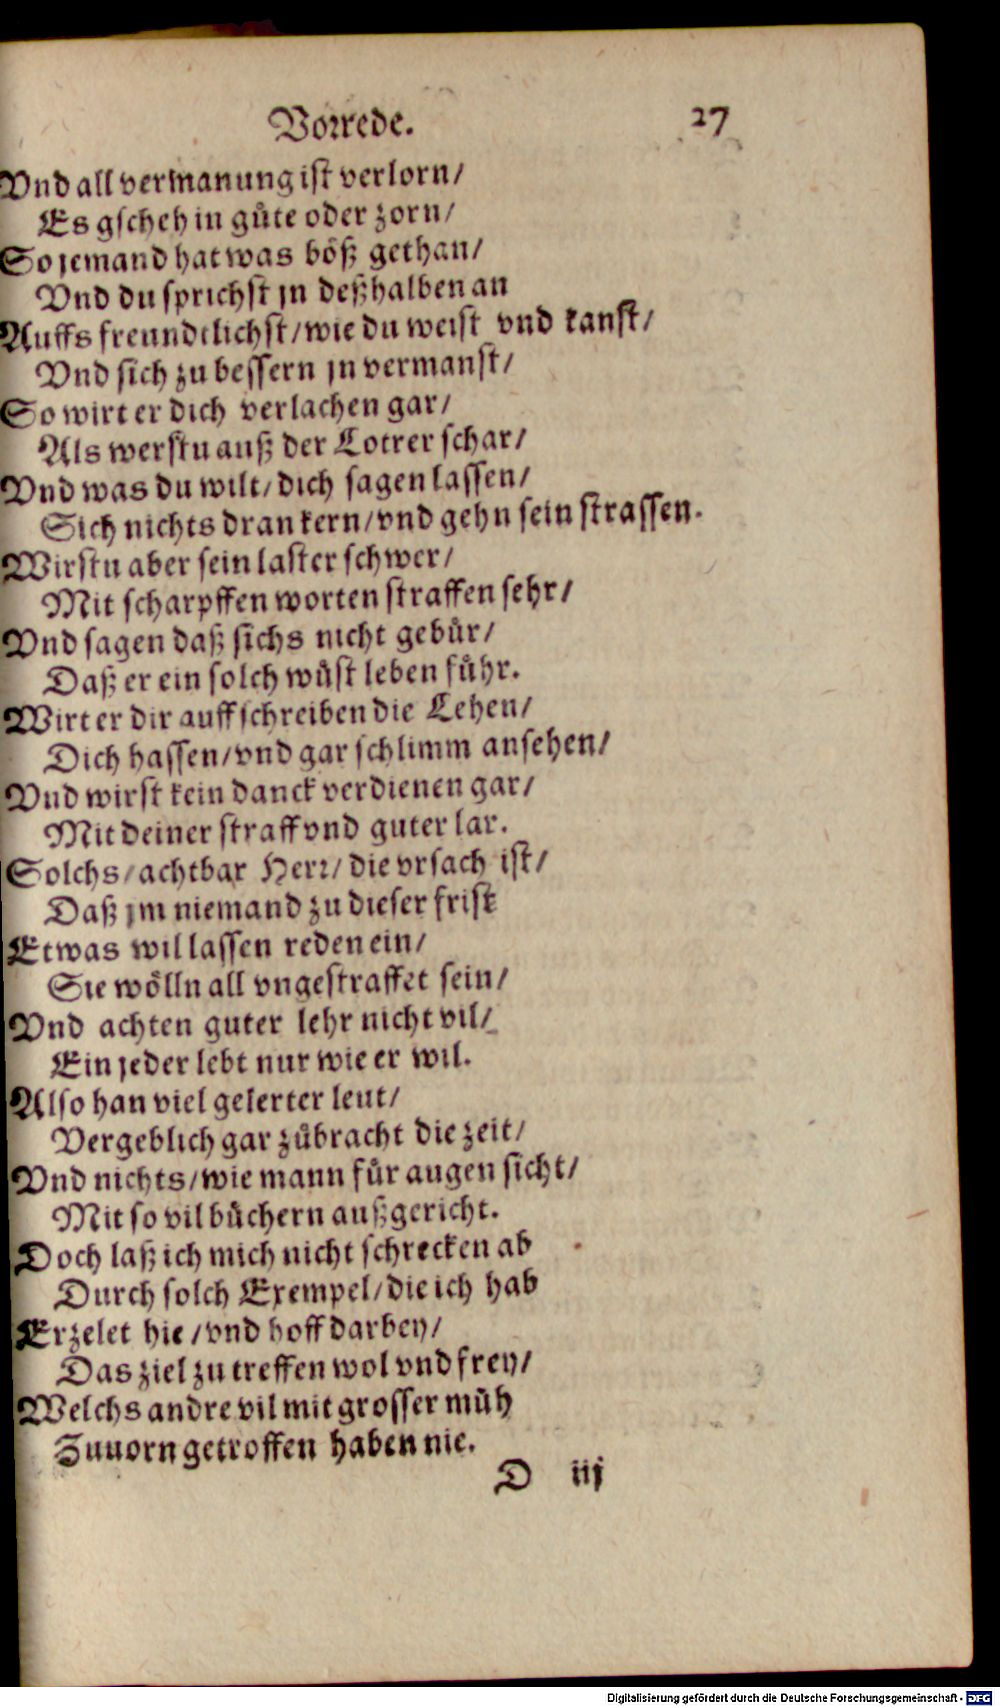 Vorrede. 27
Vnd all vermanung ist verlorn/
Es gscheh in guͤte oder zorn/
So jemand hat was böß gethan/
Vnd du sprichst jn deßhalben an
Auffs freundtlichst/wie du weist vnd kanst/
Vnd sich zu bessern jn vermanst/
So wirt er dich verlachen gar/
Als werstu auß der Lotrer schar/
Vnd was du wilt/dich sagen lassen/
Sich nichts dran kern/vnd gehn sein strassen.
Wirstu aber sein laster schwer/
Mit scharpffen worten straffen sehr/
Vnd sagen daß sichs nicht gebuͤr/
Daß er ein solch wuͤst leben fuͤhr.
Wirt er dir auffschreiben die Lehen/
Dich hassen/vnd gar schlimm ansehen/
Vnd wirst kein danck verdienen gar/
Mit deiner straff vnd guter lar.
Solchs/achtbar Herr/die vrsach ist/
Daß jm niemand zu dieser frist
Etwas wil lassen reden ein/
Sie woͤlln all vngestraffet sein/
Vnd achten guter lehr nicht vil/
Ein jeder lebt nur wie er wil.
Also han viel gelerter leut/
Vergeblich gar zuͤbracht die zeit/
Vnd nichts/wie mann fuͤr augen sicht/
Mit so vil buͤchern außgericht.
Doch laß ich mich nicht schrecken ab
Durch solch Exempel/die ich hab
Erzelet hie/vnd hoff darbey/
Das ziel zu treffen wol vnd frey/
Welchs andre vil mit grosser muͤh
Zuuorn getroffen haben nie.
D iij
Digitalisierung gefördert durch die Deutsche Forschungsgemeinschaft - DFG